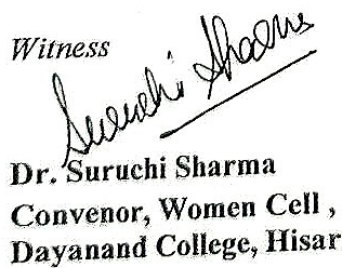 Witness
Suruchi Sharma
Dr. Suruchi Sharma
Convenor, Women Cell ,
Dayanand College, Hisar